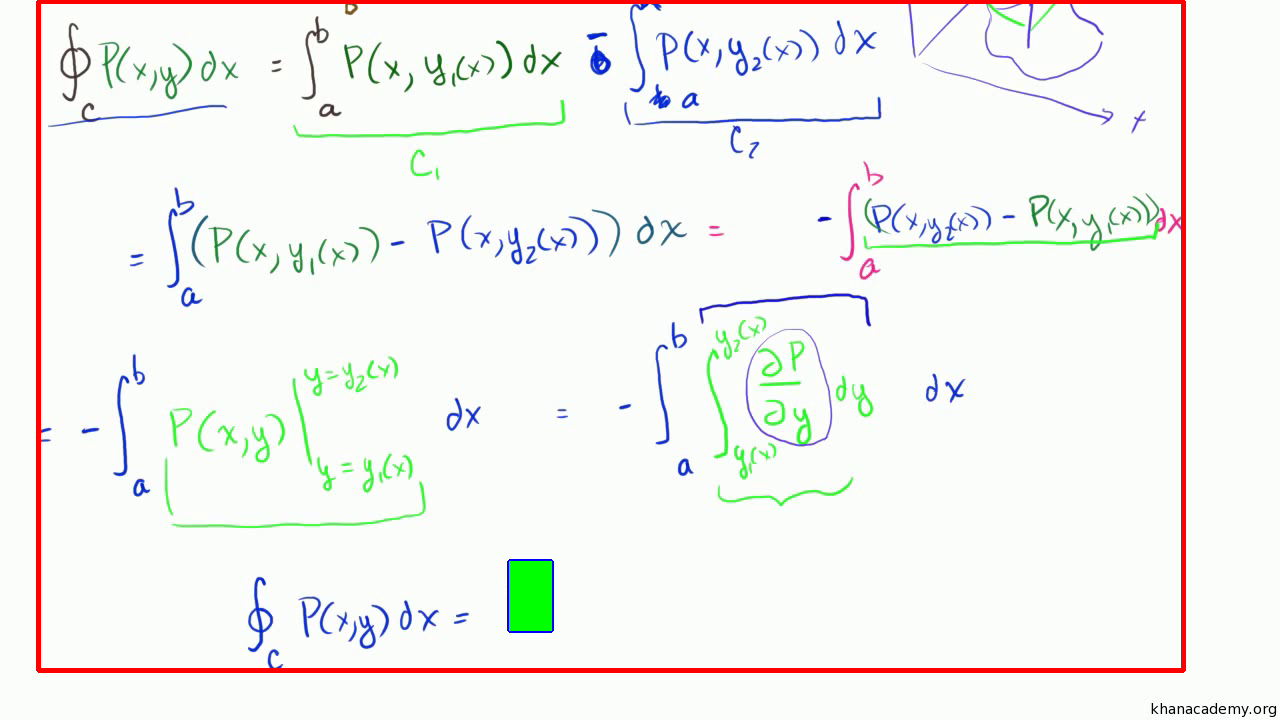 ∮_C P(x,y) dx = ∫_a^b P(x, y₁(x)) dx − ∫_a P(x, y₂(x)) dx
x
C₁ C₂
= ∫_a^b (P(x, y₁(x)) − P(x, y₂(x))) dx = − ∫_a^b (P(x, y₂(x)) − P(x, y₁(x))) dx
= − ∫_a^b P(x,y) |_{y = y₁(x)}^{y = y₂(x)} dx = − ∫_a^b ∫_{y₁(x)}^{y₂(x)} ∂P/∂y dy dx
∮_C P(x,y) dx =
khanacademy.org